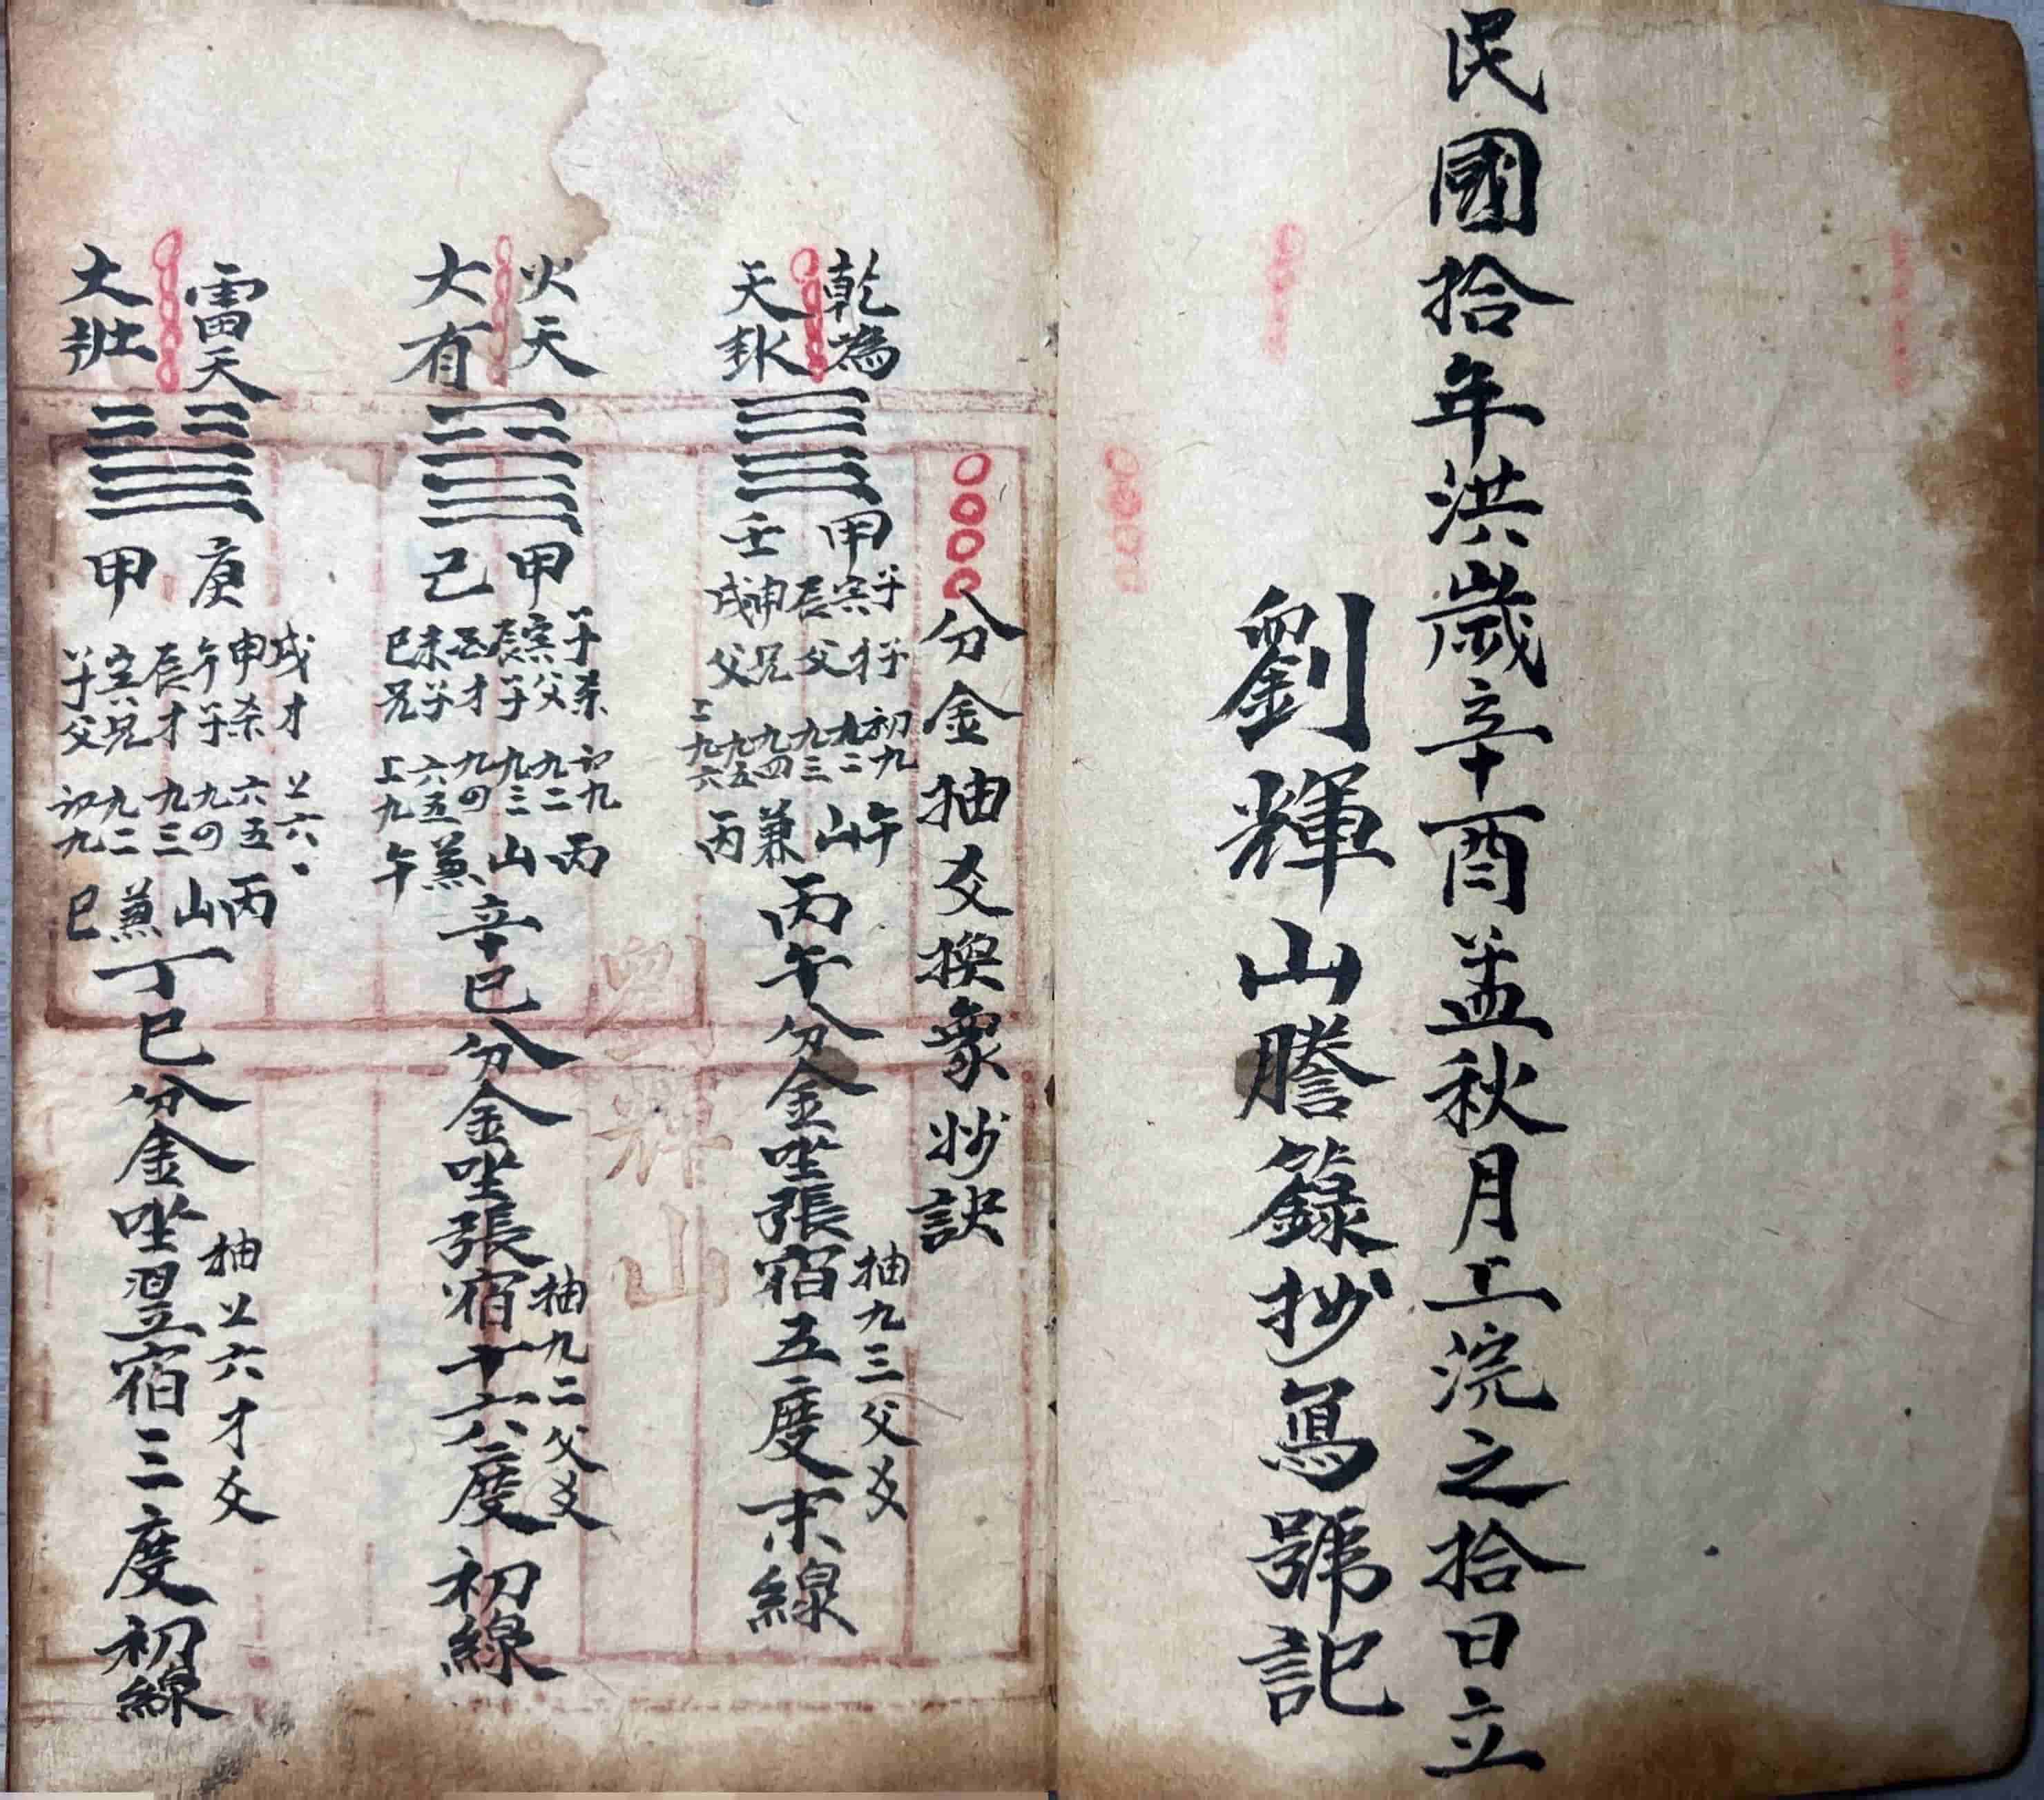 民國拾年洪歲辛酉孟秋月上浣之拾日立
劉輝山謄籙抄寫號記
分金抽爻換象妙訣
乾為
天卦
甲 子寅辰
壬 申戌
子 才 父 兄 父
初九 九二 九三 九四 九五 上九六
午山兼丙
丙午分金坐張宿五度末線
抽九三父爻
火天
大有
甲 子寅辰
己 酉未巳
子杀 寅父 辰子 酉才 未子 巳兄
初九 九二 九三 九四 六五 上九
丙山兼午
辛巳分金坐張宿十六度初線
抽九二父爻
雷天
大壯
庚
甲
戌才 申杀 午子 辰才 寅兄 子父
上六 六五 九四 九三 九二 初九
丙山兼巳
丁巳分金坐翌宿三度初線
抽上六才爻
劉輝山